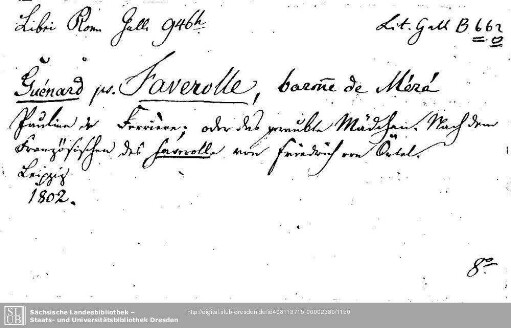 Libri Rom. Gall. 946h.
Lit. Gall. B 662
Guénard ps. Faverolle, baronne de Méré
Pauline de Ferrière; oder das geraubte Mädchen. Nach dem
Französischen des Faverolle von Friedrich von Oertel.
Leipzig
1802.
8º
Sächsische Landesbibliothek –
Staats- und Universitätsbibliothek Dresden